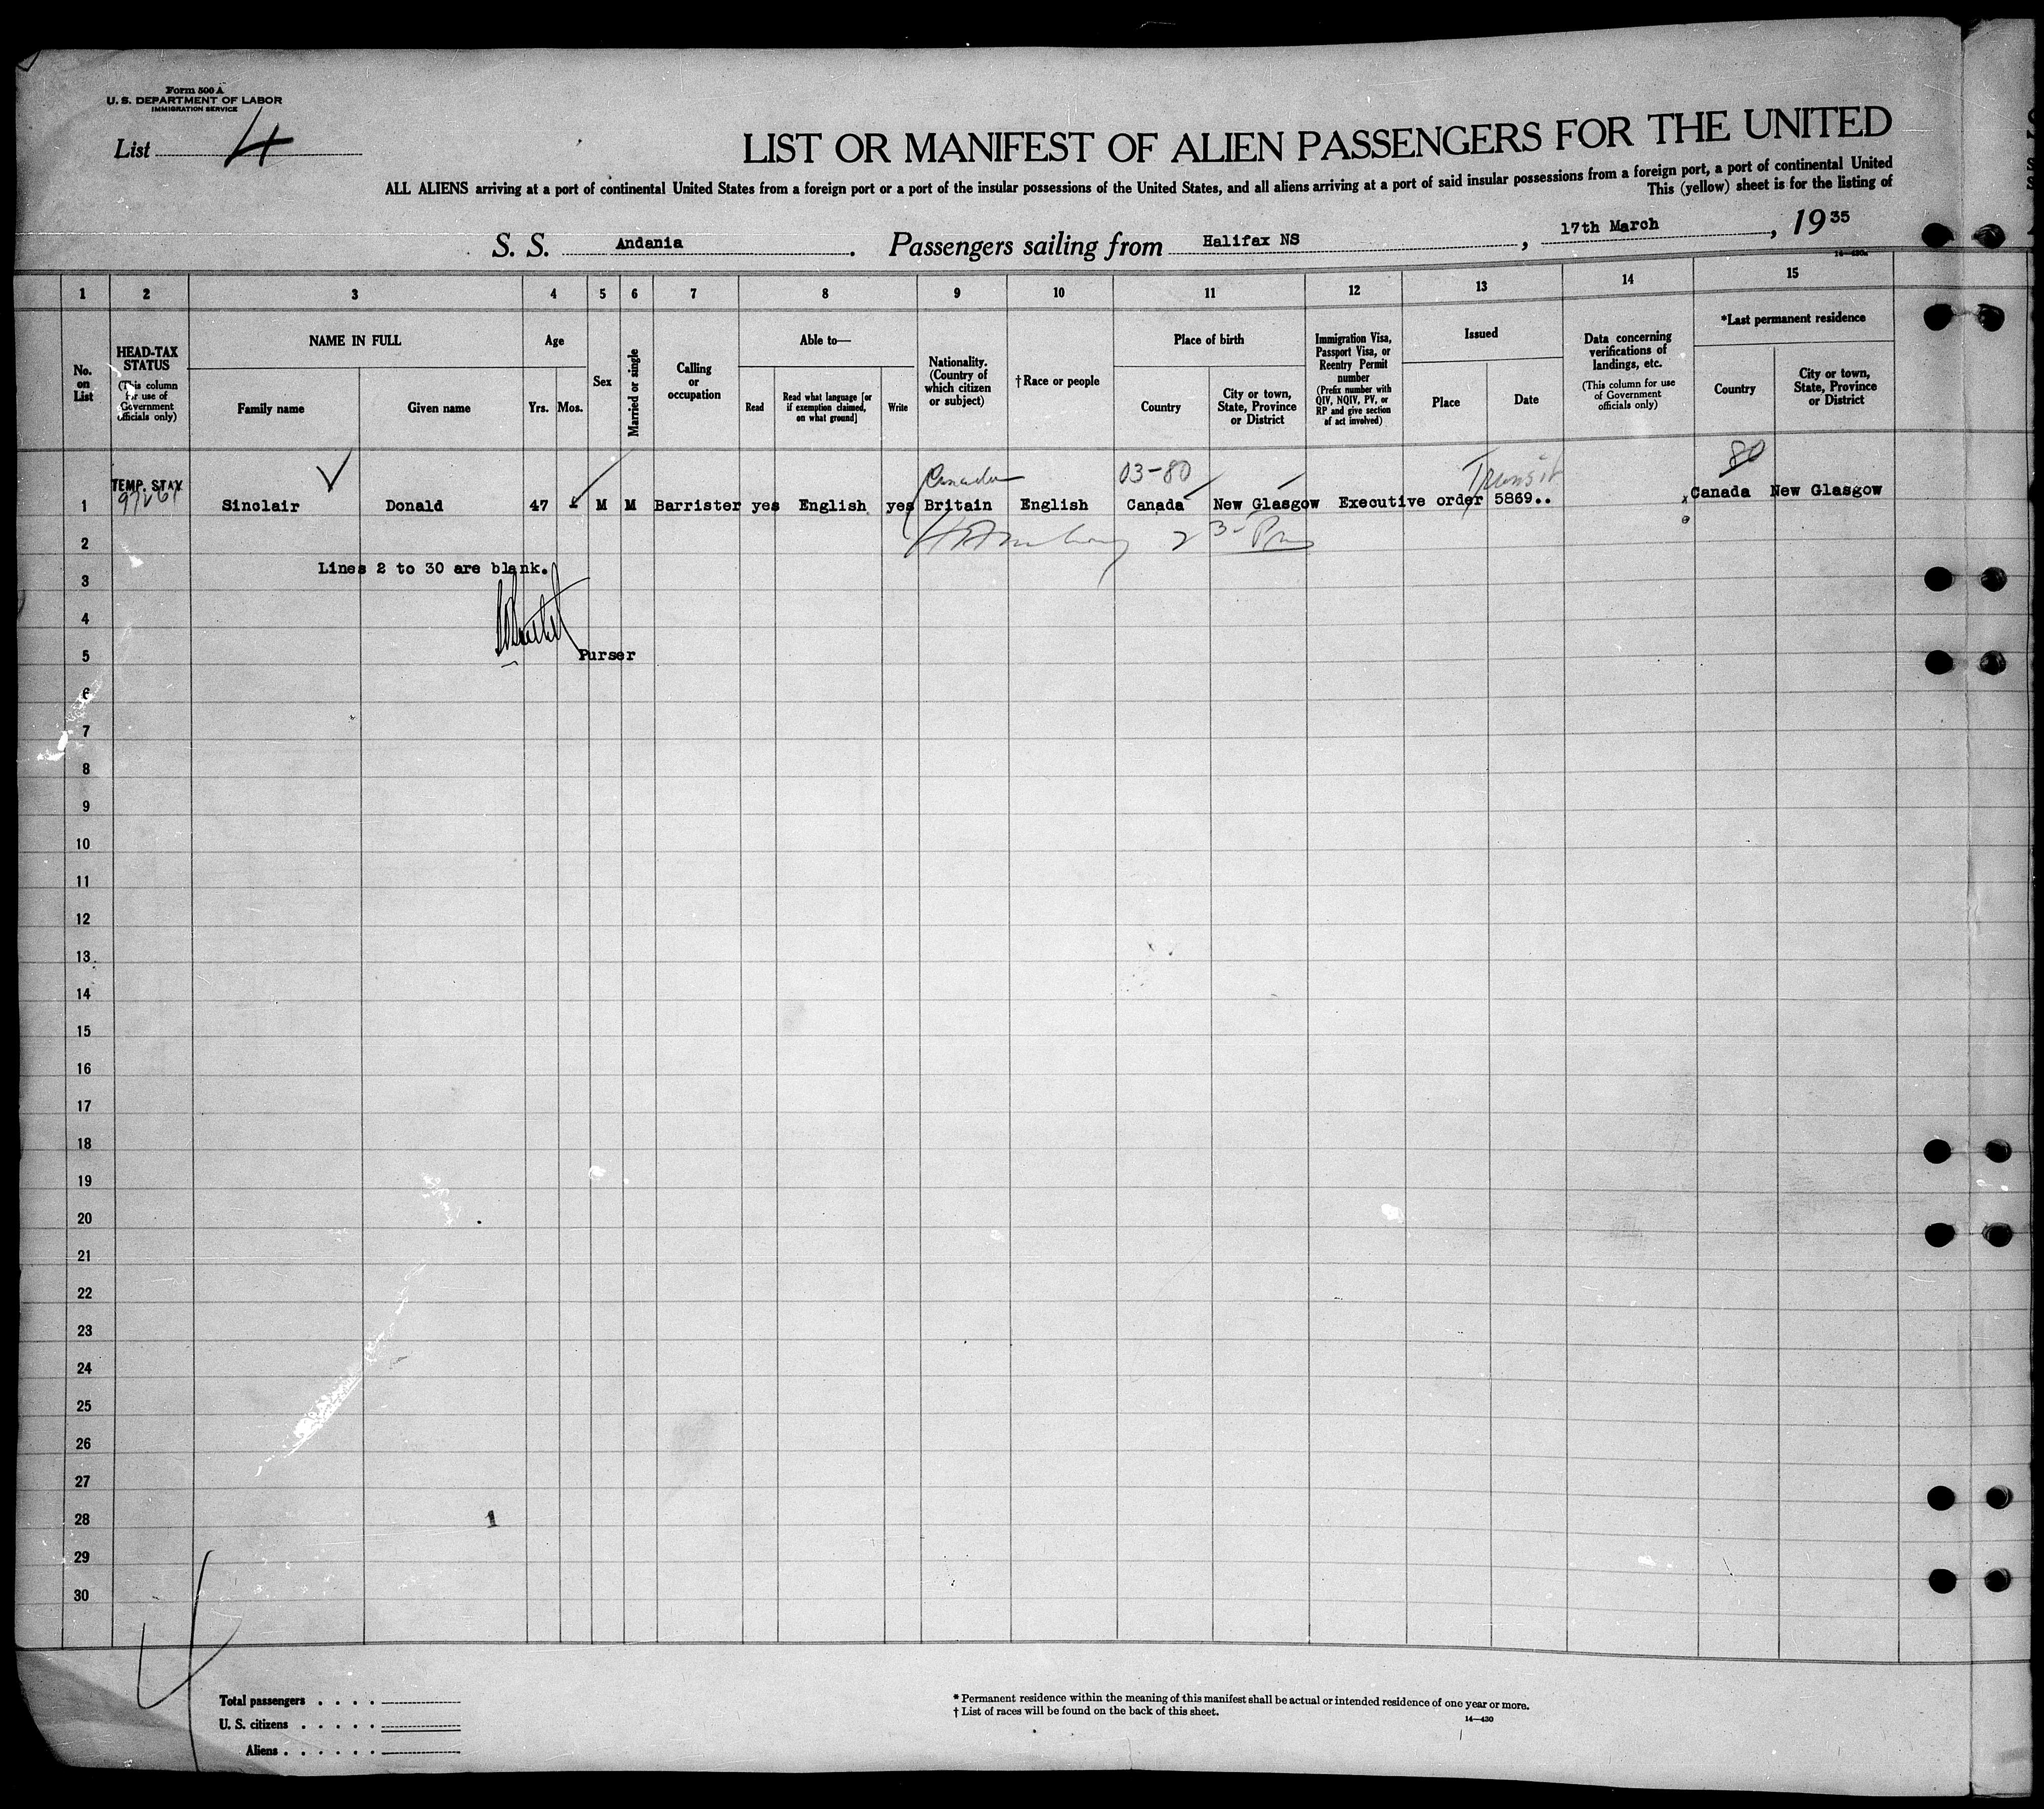 Form 500 A
U. S. DEPARTMENT OF LABOR
IMMIGRATION SERVICE
List 4
LIST OR MANIFEST OF ALIEN PASSENGERS FOR THE UNITED
ALL ALIENS arriving at a port of continental United States from a foreign port or a port of the insular possessions of the United States, and all aliens arriving at a port of said insular possessions from a foreign port, a port of continental United
This (yellow) sheet is for the listing of
S. S. Andania. Passengers sailing from Halifax NS, 17th March, 1935
14—430a
1 2 3 4 5 6 7 8 9 10 11 12 13 14 15
No. on List
HEAD-TAX STATUS
(This column for use of Government officials only)
NAME IN FULL
Family name
Given name
Age
Yrs.
Mos.
Sex
Married or single
Calling or occupation
Able to—
Read
Read what language [or if exemption claimed, on what ground]
Write
Nationality. (Country of which citizen or subject)
† Race or people
Place of birth
Country
City or town, State, Province or District
Immigration Visa, Passport Visa, or Reentry Permit number
(Prefix number with QIV, NQIV, PV, or RP and give section of act involved)
Issued
Place
Date
Data concerning verifications of landings, etc.
(This column for use of Government officials only)
*Last permanent residence
Country
City or town, State, Province or District
Canada 03-80 Transit 80
TEMP. STAY
1 Sinclair Donald 47 M M Barrister yes English yes Britain English Canada New Glasgow Executive order 5869.. x Canada New Glasgow
2
Lines 2 to 30 are blank.
3
4
5 Purser
6
7
8
9
10
11
12
13
14
15
16
17
18
19
20
21
22
23
24
25
26
27
28 1
29
30
Total passengers . . . .
U. S. citizens . . . . .
Aliens . . . . . .
* Permanent residence within the meaning of this manifest shall be actual or intended residence of one year or more.
† List of races will be found on the back of this sheet.
14—430